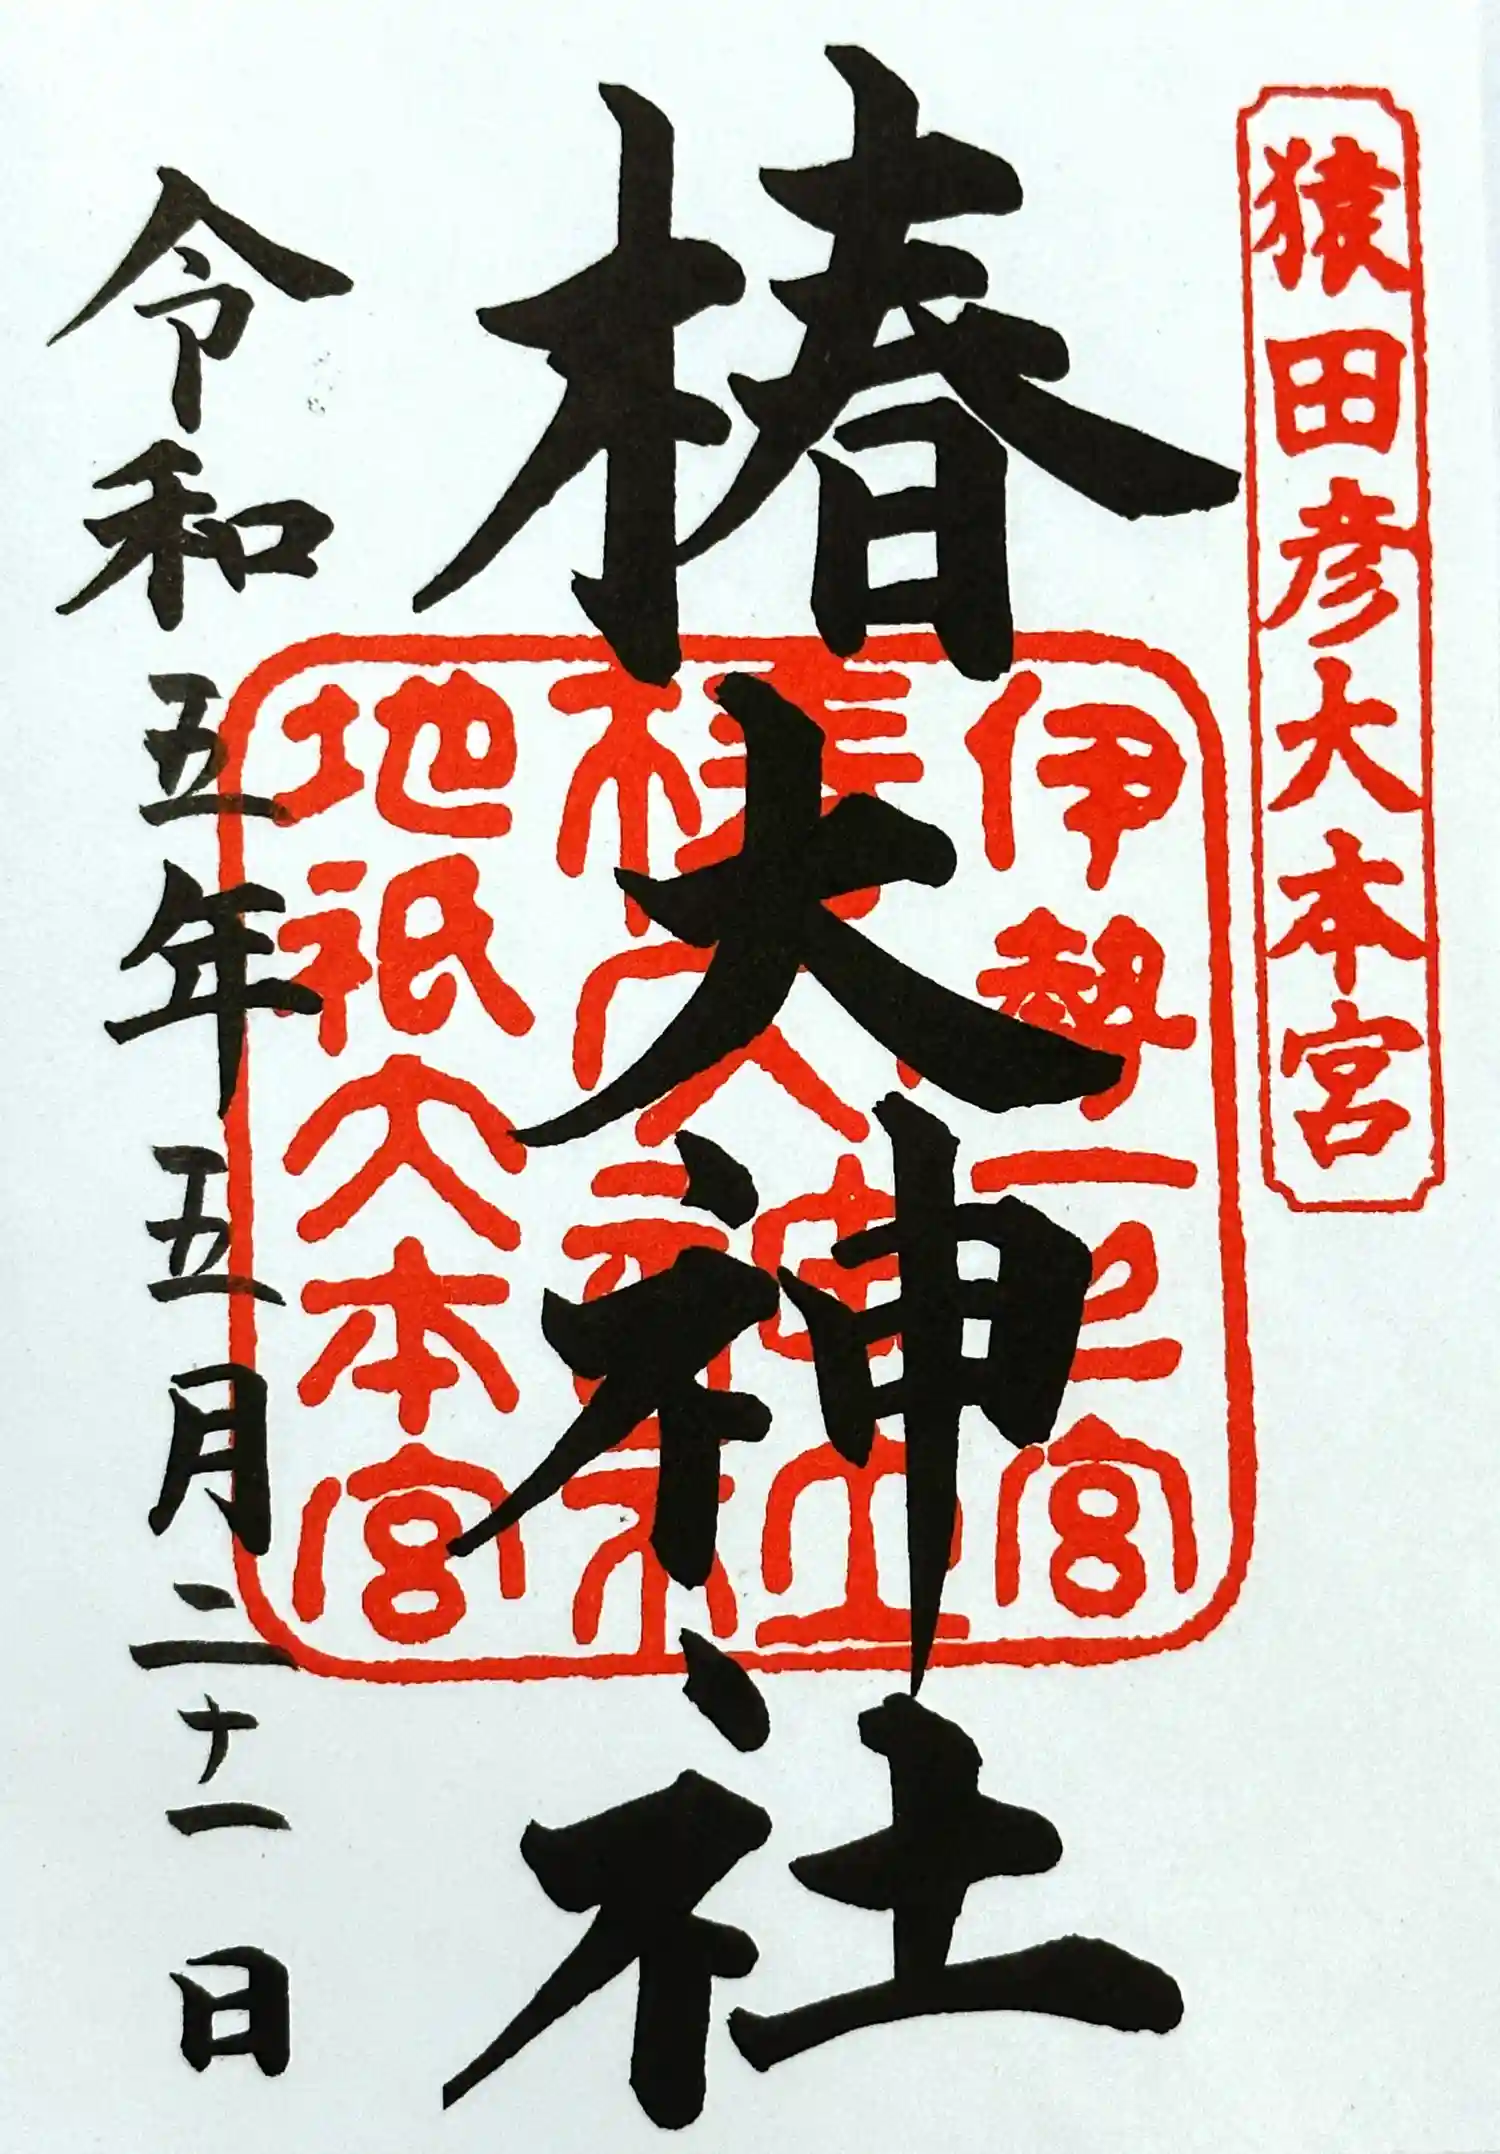 猿田彦大本宮
椿大神社
伊勢一之宮
椿大神社
地祇大本宮
令和五年五月二十一日